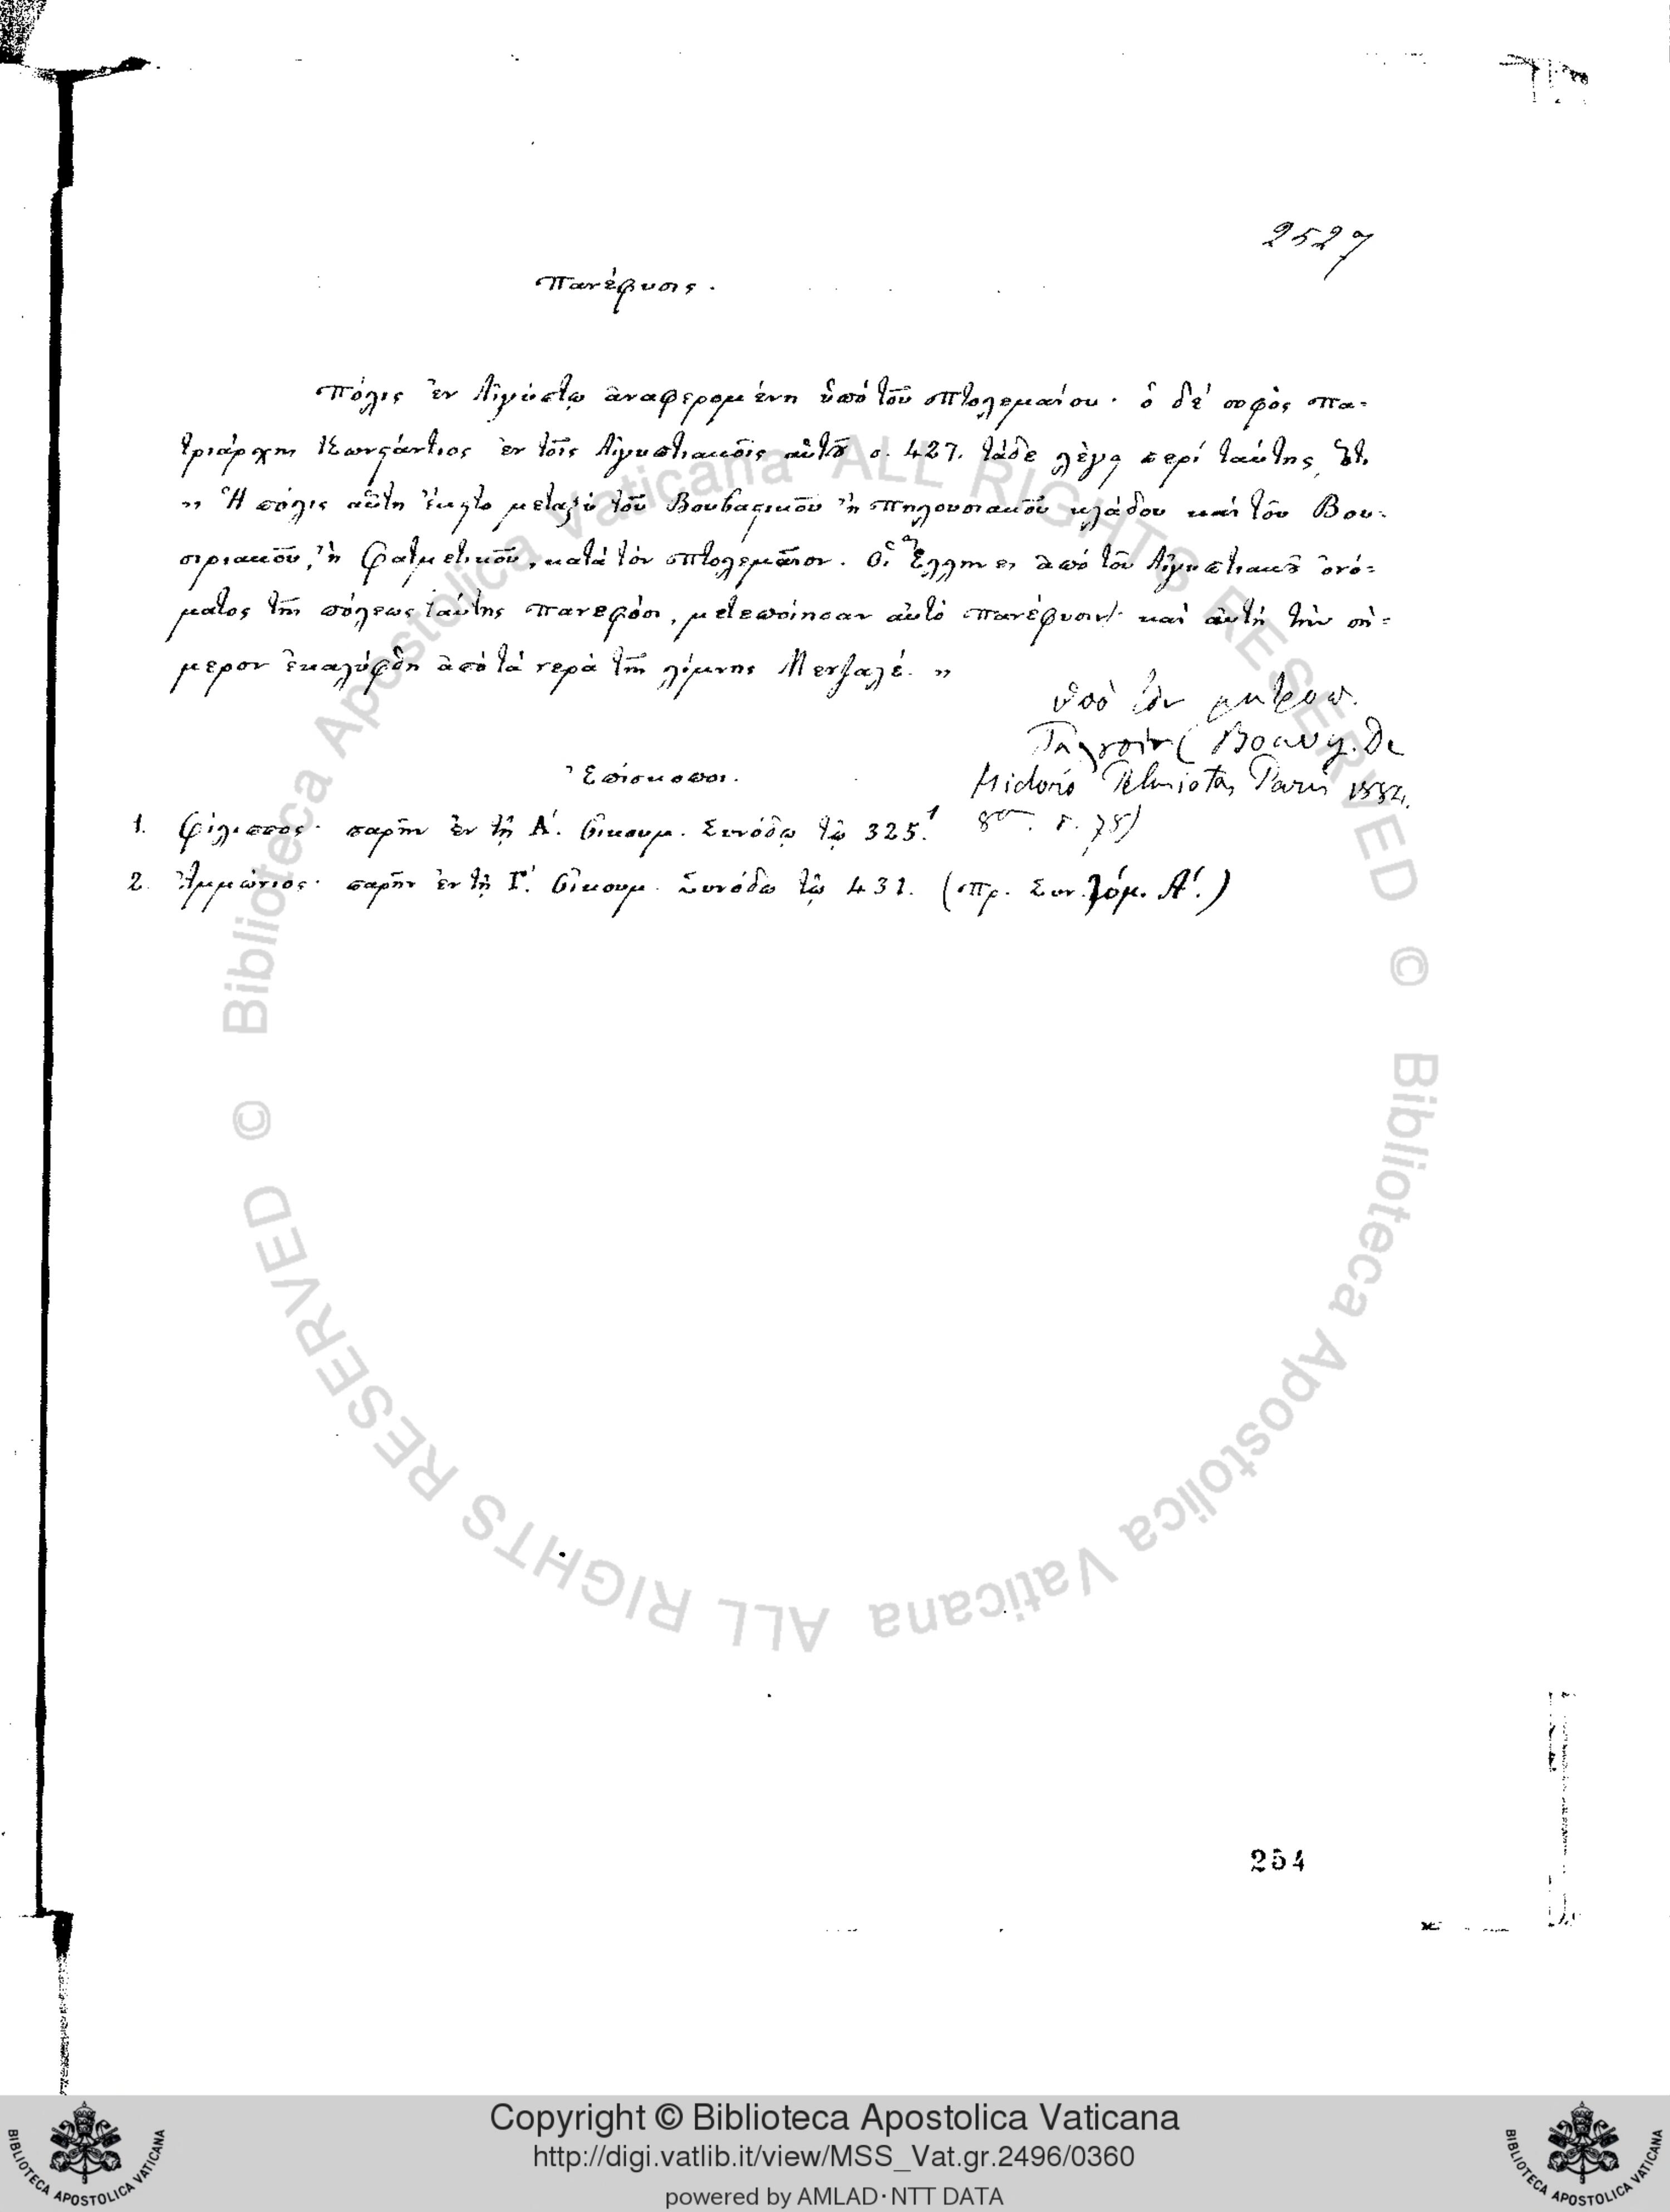 2527
Πανέφυσις.
Πόλις ἐν Αἰγύπτῳ ἀναφερομένη ὑπό τοῦ Πτολεμαίου· ὁ δέ σοφὸς Πα-
τριάρχης Κωνστάντιος ἐν τοῖς Αἰγυπτιακοῖς αὐτοῦ σ. 427. τάδε λέγει περί ταύτης,
„ Ἡ πόλις αὕτη ἔκειτο μεταξύ τοῦ Βουβαστικοῦ ἢ Πηλουσιακοῦ κλάδου καί τοῦ Βου-
σιριακοῦ, ἢ Φατμετικοῦ, κατά τόν Πτολεμαῖον. Οἱ Ἕλληνες ἀπό τοῦ Αἰγυπτιακοῦ ὀνό-
ματος τῆς πόλεως ταύτης Πανεφόσι, μετεποίησαν αὐτό Πανέφυσιν· καί αὐτή τήν σή-
μερον ἐκαλύφθη ἀπό τά νερά τῆς λίμνης Μενζαλέ. „
ὑπὸ τὸν μητροπ.
Bouvy. De
Isidoro Pelusiota, Paris 1884.
8ο. p. 78)
Ἐπίσκοποι.
1. Φίλιππος· παρῆν ἐν τῇ Α΄. Οἰκουμ. Συνόδῳ τῷ 325.
2. Ἀμμώνιος· παρῆν ἐν τῇ Γ΄. Οἰκουμ. Συνόδῳ τῷ 431. (Πρ. Συν. Τόμ. Α΄.)
254
© Biblioteca Apostolica Vaticana ALL RIGHTS RESERVED © Biblioteca Apostolica Vaticana ALL RIGHTS RESERVED
Copyright © Biblioteca Apostolica Vaticana
http://digi.vatlib.it/view/MSS_Vat.gr.2496/0360
powered by AMLAD·NTT DATA
BIBLIOTECA APOSTOLICA VATICANA
BIBLIOTECA APOSTOLICA VATICANA